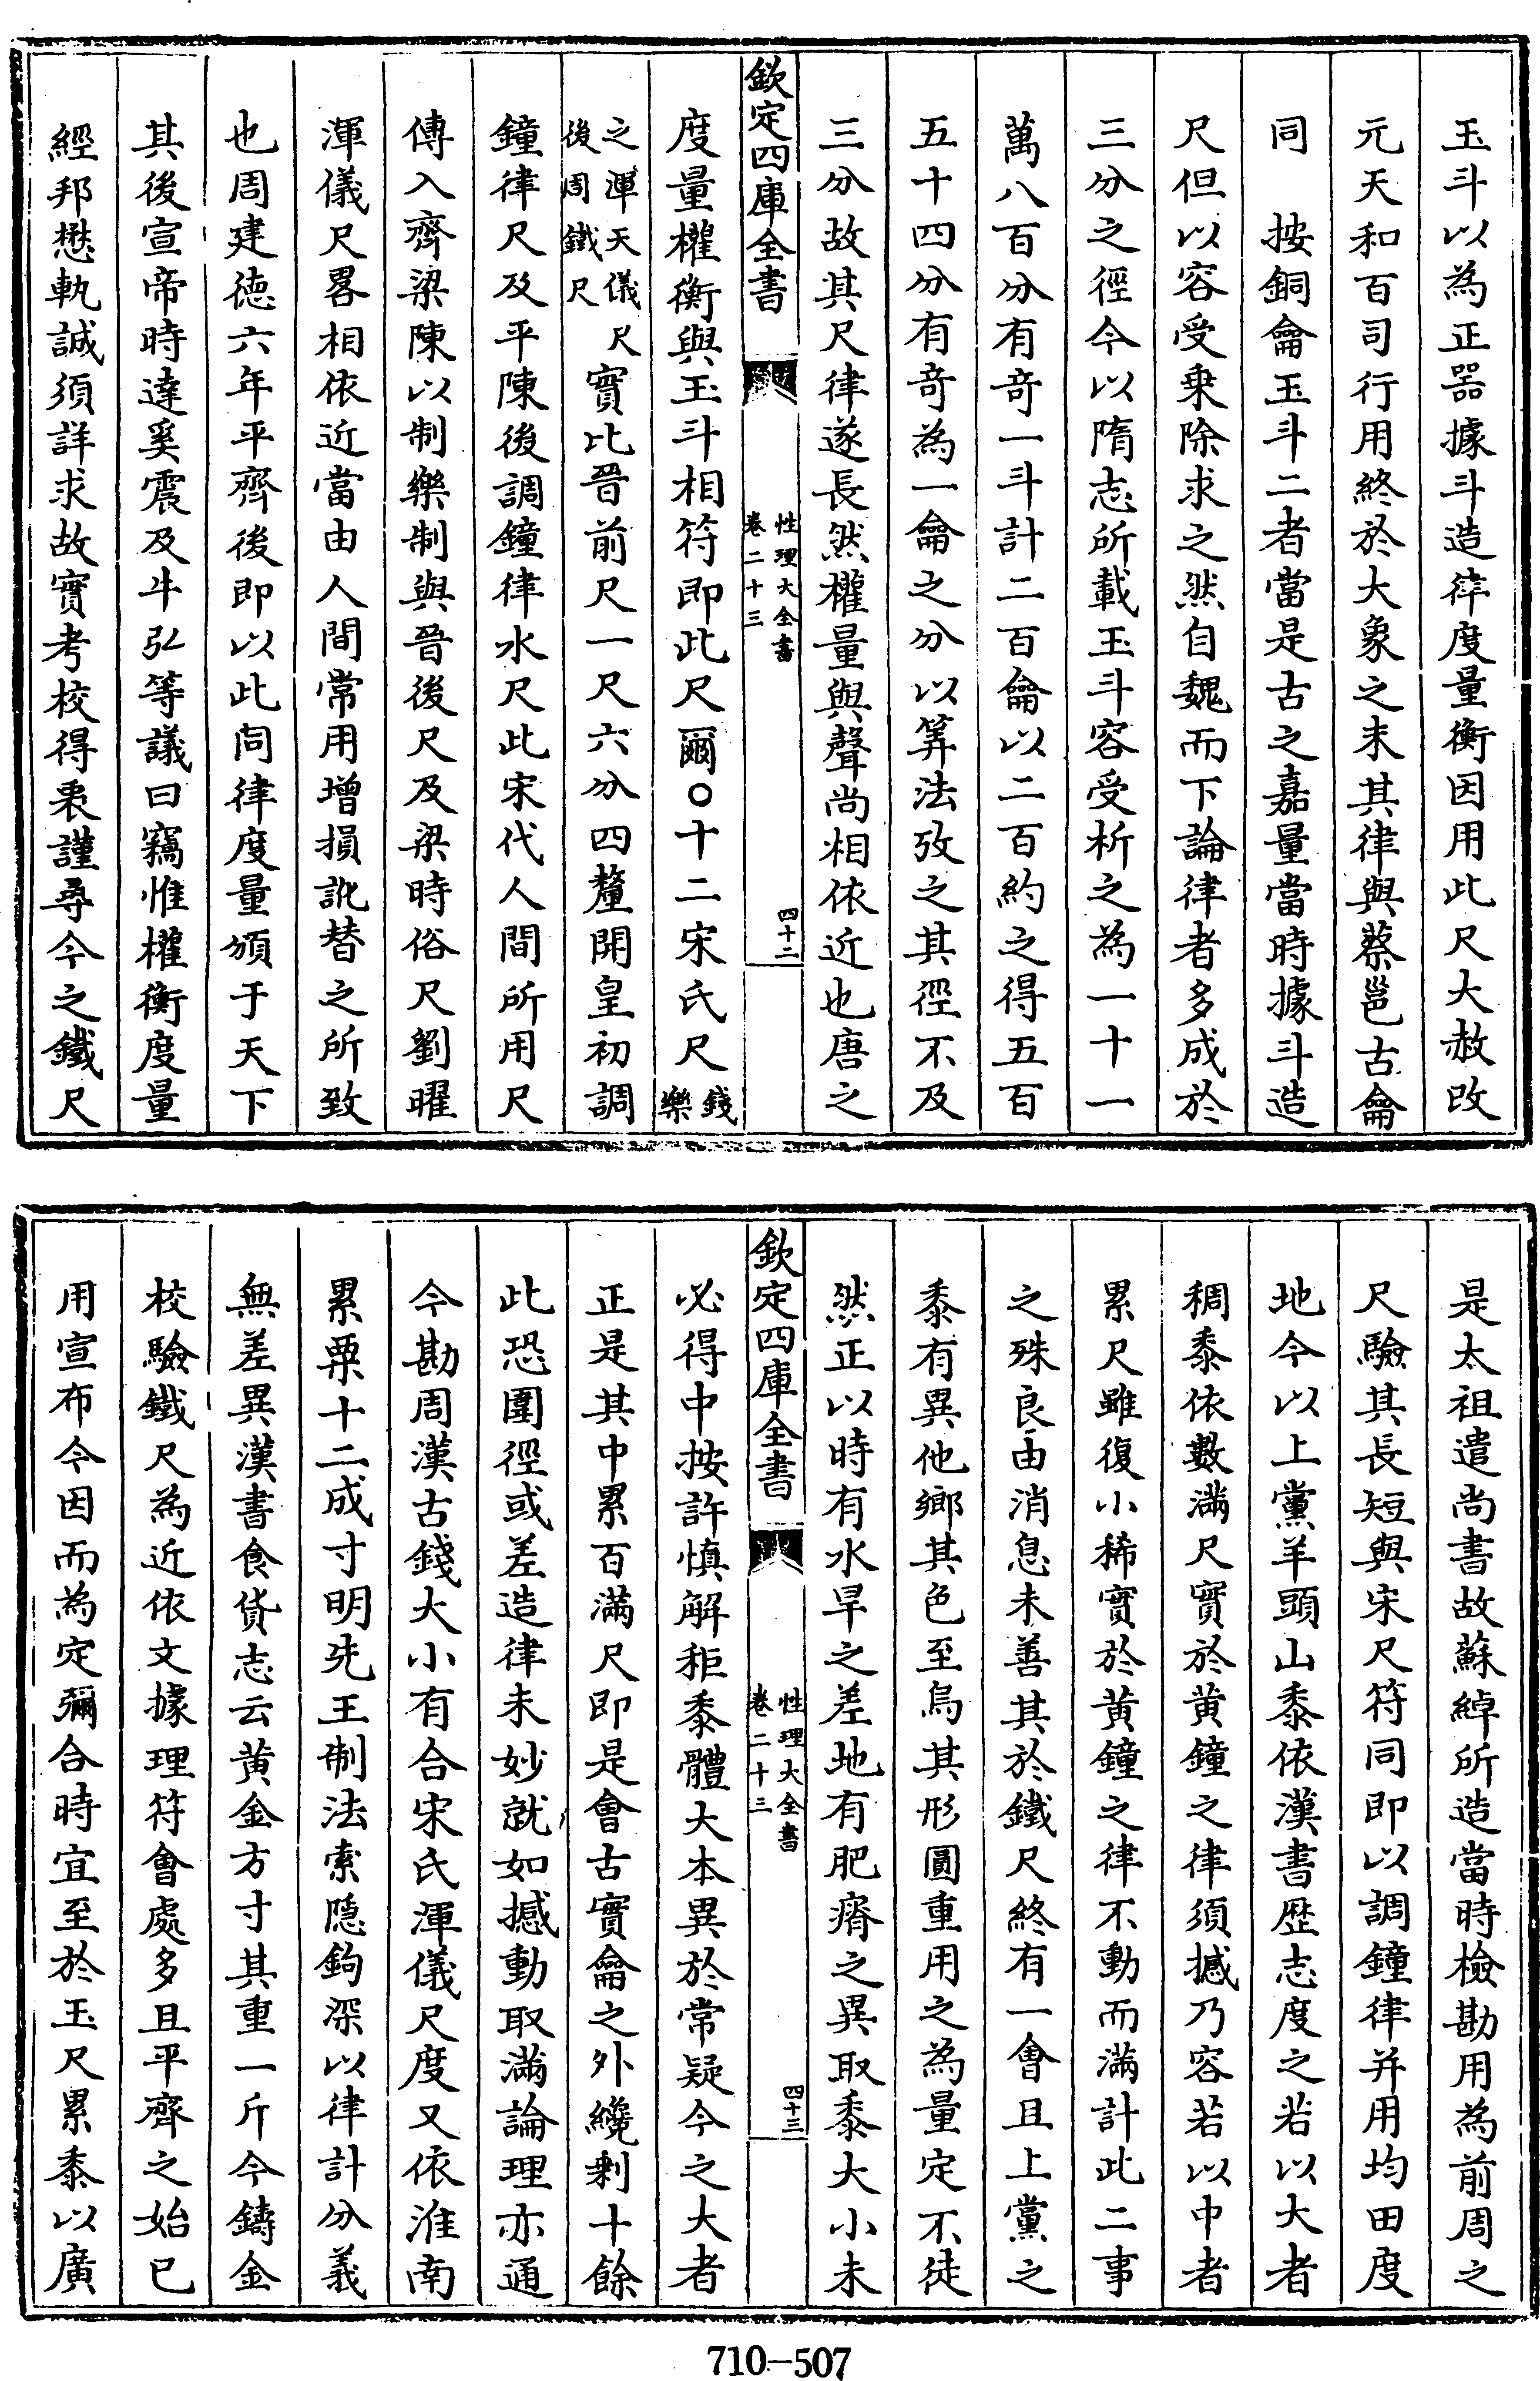 玉斗以為正噐據斗造律度量衡因用此尺大赦改
元天和百司行用終於大象之末其律與蔡邕古龠
同　按銅龠玉斗二者當是古之嘉量當時據斗造
尺但以容受乗除求之然自魏而下論律者多成於
三分之徑今以隋志所載玉斗容受析之為一十一
萬八百分有竒一斗計二百龠以二百約之得五百
五十四分有竒為一龠之分以筭法攷之其徑不及
三分故其尺律遂長然權量與聲尚相依近也唐之
欽定四庫全書
性理大全書
卷二十三
四十二
度量權衡與玉斗相符即此尺爾○十二宋氏尺錢樂
之渾天儀尺後周鐵尺實比晉前尺一尺六分四釐開皇初調
鐘律尺及平陳後調鐘律水尺此宋代人間所用尺
傳入齊梁陳以制樂制與晉後尺及梁時俗尺劉曜
渾儀尺畧相依近當由人間常用增損訛替之所致
也周建德六年平齊後即以此同律度量頒于天下
其後宣帝時達奚震及牛弘等議曰竊惟權衡度量
經邦懋軌誠須詳求故實考校得衷謹尋今之鐵尺
是太祖遣尚書故蘇綽所造當時檢勘用為前周之
尺驗其長短與宋尺符同即以調鐘律并用均田度
地今以上黨羊頭山黍依漢書歴志度之若以大者
稠黍依數滿尺實於黄鐘之律須撼乃容若以中者
累尺雖復小稀實於黄鐘之律不動而滿計此二事
之殊良由消息未善其於鐵尺終有一會且上黨之
黍有異他鄉其色至烏其形圓重用之為量定不徒
然正以時有水旱之差地有肥瘠之異取黍大小未
欽定四庫全書
性理大全書
卷二十三
四十三
必得中按許慎解秬黍體大本異於常疑今之大者
正是其中累百滿尺即是會古實龠之外纔剩十餘
此恐圍徑或差造律未妙就如撼動取滿論理亦通
今勘周漢古錢大小有合宋氏渾儀尺度又依淮南
累粟十二成寸明先王制法索隱鈎深以律計分義
無差異漢書食貨志云黄金方寸其重一斤今鑄金
校驗鐵尺為近依文據理符會處多且平齊之始已
用宣布今因而為定彌合時宜至於玉尺累黍以廣
710-507